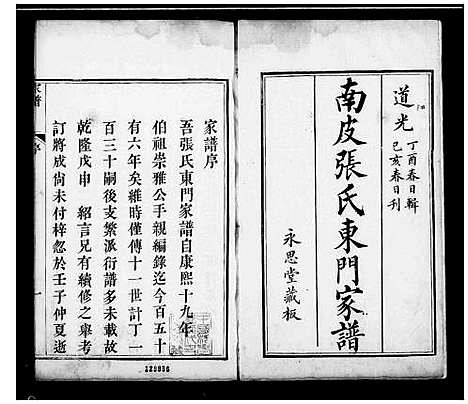 道光
丁酉春日輯
己亥春日刊
南皮張氏東門家譜
永思堂藏板
家譜序
吾張氏東門家譜自康熙十九年
伯祖崇雅公手親編錄迄今百五十
有六年矣維時僅傳十一世計丁一
百三十嗣後支繁派衍譜多未載故
乾隆戊申 紹言兄有續修之舉考
訂將成尚未付梓忽於壬子仲夏逝
家譜
序
一
329936